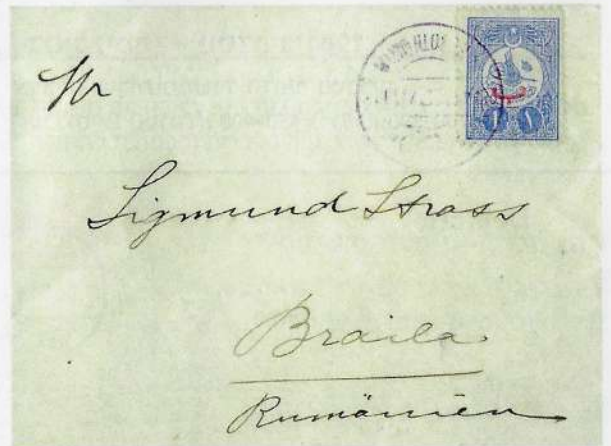 Hr
Sigmund Strass
Braila
Rumänien
1 ١